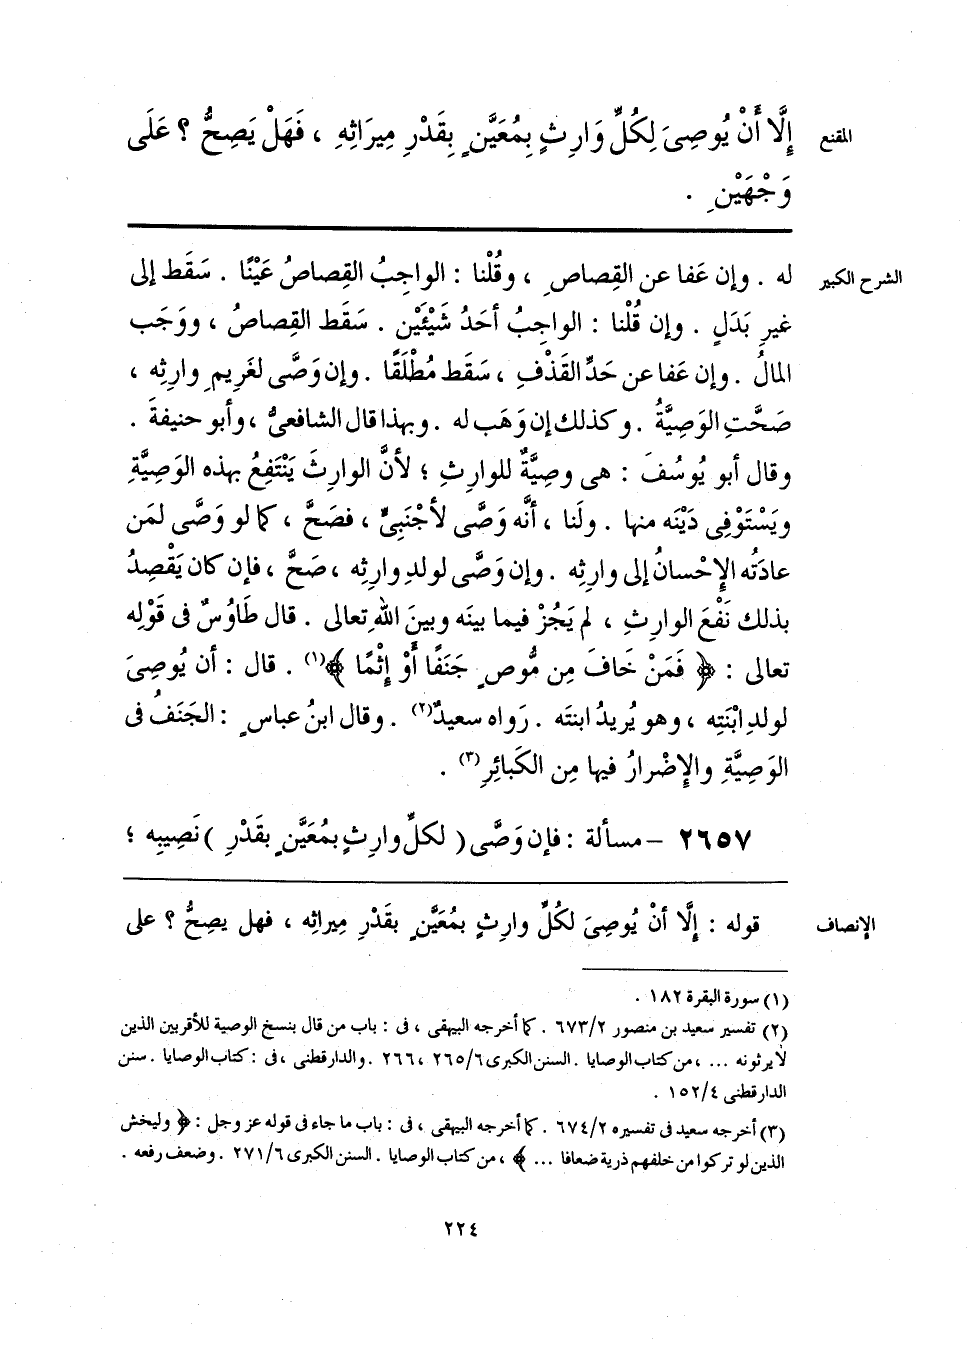 المقنع إِلَّا أَنْ يُوصِىَ لِكُلِّ وَارِثٍ بِمُعَيَّنٍ بِقَدْرِ مِيرَاثِهِ ، فَهَلْ يَصِحُّ ؟ عَلَى
وَجْهَيْنِ .
الشرح الكبير له . وإن عَفا عن القِصاصِ ، وقُلْنا : الواجِبُ القِصاصُ عَيْنًا . سَقَط إلى
غيرِ بَدَلٍ . وإن قُلْنا : الواجِبُ أحَدُ شَيْئَيْن . سَقَط القِصاصُ ، ووَجَب
المالُ . وإن عَفا عن حَدِّ القَذْفِ ، سَقَط مُطْلَقًا . وإن وَصَّى لغَرِيمِ وارِثِه ،
صَحَّتِ الوَصِيَّةُ . وكذلك إن وَهَب له . وبهذا قال الشافعىُّ ، وأبو حنيفةَ .
وقال أبو يُوسُفَ : هى وصِيَّةٌ للوارِثِ ؛ لأنَّ الوارِثَ يَنْتَفِعُ بهذه الوَصِيَّةِ
ويَسْتَوْفِى دَيْنَه منها . ولَنا ، أنَّه وَصَّى لأجْنَبِىٍّ ، فصَحَّ ، كما لو وَصَّى لمَن
عادَتُه الإِحْسانُ إلى وارِثِه . وإن وَصَّى لولدِ وارِثِه ، صَحَّ ، فإن كان يَقْصِدُ
بذلك نَفْعَ الوارِثِ ، لم يَجُزْ فيما بينَه وبينَ اللهِ تعالى . قال طَاوُسٌ فى قَوْلِه
تعالى : ﴿ فَمَنْ خَافَ مِن مُّوصٍ جَنَفًا أَوْ إِثْمًا ﴾(١) . قال : أن يُوصِىَ
لولدِ ابْنَتِه ، وهو يُريدُ ابنتَه . رَواه سعيدٌ(٢) . وقال ابنُ عباسٍ : الجَنَفُ فى
الوَصِيَّةِ والإِضْرارُ فيها مِن الكَبائِرِ(٣) .
٢٦٥٧ – مسألة : فإن وَصَّى ( لكلِّ وارِثٍ بمُعَيَّنٍ بقَدْرِ ) نَصِيبِه ؛
الإنصاف قوله : إِلَّا أنْ يُوصِىَ لكُلِّ وارِثٍ بمُعَيَّنٍ بقَدْرِ مِيراثِه ، فهل يصِحُّ ؟ على
(١) سورة البقرة ١٨٢ .
(٢) تفسير سعيد بن منصور ٦٧٣/٢ . كما أخرجه البيهقى ، فى : باب من قال بنسخ الوصية للأقربين الذين
لا يرثونه ... ، من كتاب الوصايا . السنن الكبرى ٢٦٥/٦ ، ٢٦٦ . والدارقطنى ، فى : كتاب الوصايا . سنن
الدارقطنى ١٥٢/٤ .
(٣) أخرجه سعيد فى تفسيره ٦٧٤/٢ . كما أخرجه البيهقى ، فى : باب ما جاء فى قوله عز وجل : ﴿ وليخش
الذين لو تركوا من خلفهم ذرية ضعافا ... ﴾ ، من كتاب الوصايا . السنن الكبرى ٢٧١/٦ . وضعف رفعه .
٢٢٤